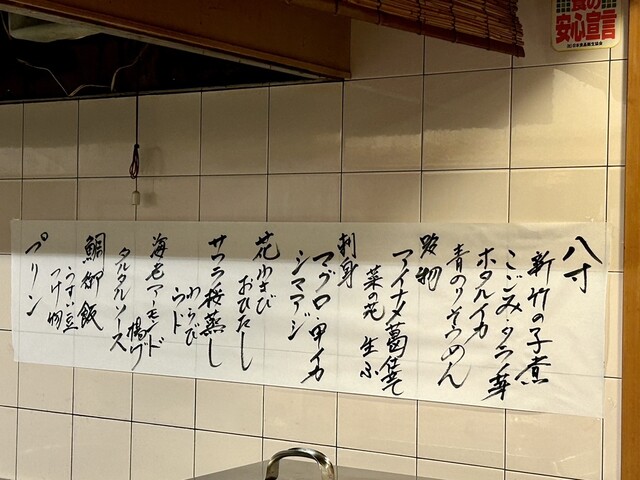 八寸
新竹の子煮
こごみ・タラノ芽
ホタルイカ
青のりそうめん
アイナメ葛仕立て
菜の花 生ふ
刺身
マグロ・甲イカ
シマアジ
花わさび
おひたし
サワラ桜蒸し
わらび
ウド
海老アーモンド揚げ
タルタルソース
鯛御飯
うすい豆
つけ物
プリン
食の
安心宣言